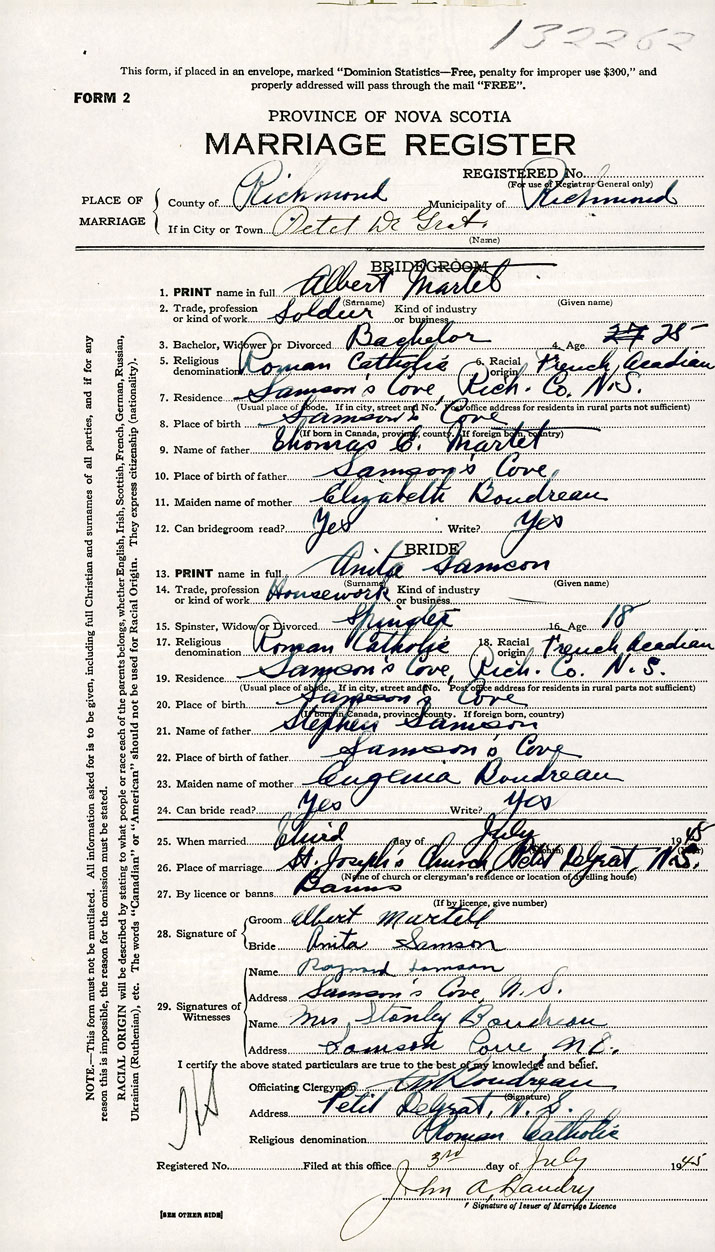 132262
This form, if placed in an envelope, marked "Dominion Statistics—Free, penalty for improper use $300," and
properly addressed will pass through the mail "FREE".
FORM 2
PROVINCE OF NOVA SCOTIA
MARRIAGE REGISTER
REGISTERED No.
(For use of Registrar General only)
PLACE OF MARRIAGE
County of Richmond Municipality of Richmond
If in City or Town Petet De Grat.
(Name)
BRIDEGROOM
1. PRINT name in full Albert Martet
(Surname) (Given name)
2. Trade, profession or kind of work Soldier Kind of industry or business
3. Bachelor, Widower or Divorced Bachelor 4. Age 27 25
5. Religious denomination Roman Catholic 6. Racial origin French Acadian
7. Residence Samson's Cove, Rich. Co. N.S.
(Usual place of abode. If in city, street and No. Post office address for residents in rural parts not sufficient)
8. Place of birth Samson's Cove
(If born in Canada, province, county. If foreign born, country)
9. Name of father Thomas C. Martet
10. Place of birth of father Samson's Cove
11. Maiden name of mother Elizabeth Boudreau
12. Can bridegroom read? Yes Write? Yes
BRIDE
13. PRINT name in full Anita Samson
(Surname) (Given name)
14. Trade, profession or kind of work Housework Kind of industry or business
15. Spinster, Widow or Divorced Spinster 16. Age 18
17. Religious denomination Roman Catholic 18. Racial origin French Acadian
19. Residence Samson's Cove, Rich. Co. N.S.
(Usual place of abode. If in city, street and No. Post office address for residents in rural parts not sufficient)
20. Place of birth Samson's Cove
(If born in Canada, province, county. If foreign born, country)
21. Name of father Stephen Samson
22. Place of birth of father Samson's Cove
23. Maiden name of mother Eugenia Boudreau
24. Can bride read? Yes Write? Yes
25. When married Third day of July 1945
(Month) (Year)
26. Place of marriage St. Joseph's Church Petit Degrat, N.S.
(Name of church or clergyman's residence or location of dwelling house)
27. By licence or banns Banns
(If by licence, give number)
28. Signature of
Groom Albert Martell
Bride Anita Samson
29. Signatures of Witnesses
Name Raymond Samson
Address Samson's Cove, N.S.
Name Mrs. Stanley Boudreau
Address Samson Cove, N.S.
I certify the above stated particulars are true to the best of my knowledge and belief.
Officiating Clergyman Boudreau
(Signature)
Address Petit Degrat, N.S.
Religious denomination Roman Catholic
Registered No. Filed at this office 3rd day of July 1945
John A. Landry
Signature of Issuer of Marriage Licence
[SEE OTHER SIDE]
NOTE.—This form must not be mutilated. All information asked for is to be given, including full Christian and surnames of all parties, and if for any
reason this is impossible, the reason for the omission must be stated.
RACIAL ORIGIN will be described by stating to what people or race each of the parents belongs, whether English, Irish, Scottish, French, German, Russian,
Ukrainian (Ruthenian), etc. The words "Canadian" or "American" should not be used for Racial Origin. They express citizenship (nationality).